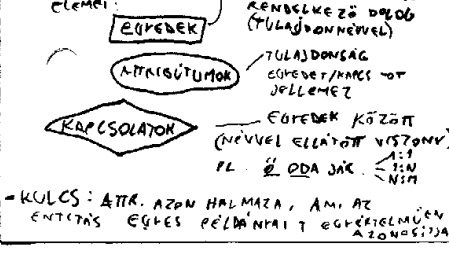 ELEMEI:
RENDELKEZŐ DOLOG
(TULAJDONNÉVVEL)
EGYEDEK
ATTRIBÚTUMOK
TULAJDONSÁG
EGYEDET/KAPCS-OT
JELLEMEZ
KAPCSOLATOK
EGYEDEK KÖZÖTT
(NÉVVEL ELLÁTOTT VISZONY)
PL. Ő ODA JÁR
1:1
1:N
N:M
- KULCS: ATTR. AZON HALMAZA, AMI AZ
ENTITÁS EGYES PÉLDÁNYAIT EGYÉRTELMŰEN
AZONOSÍTJA